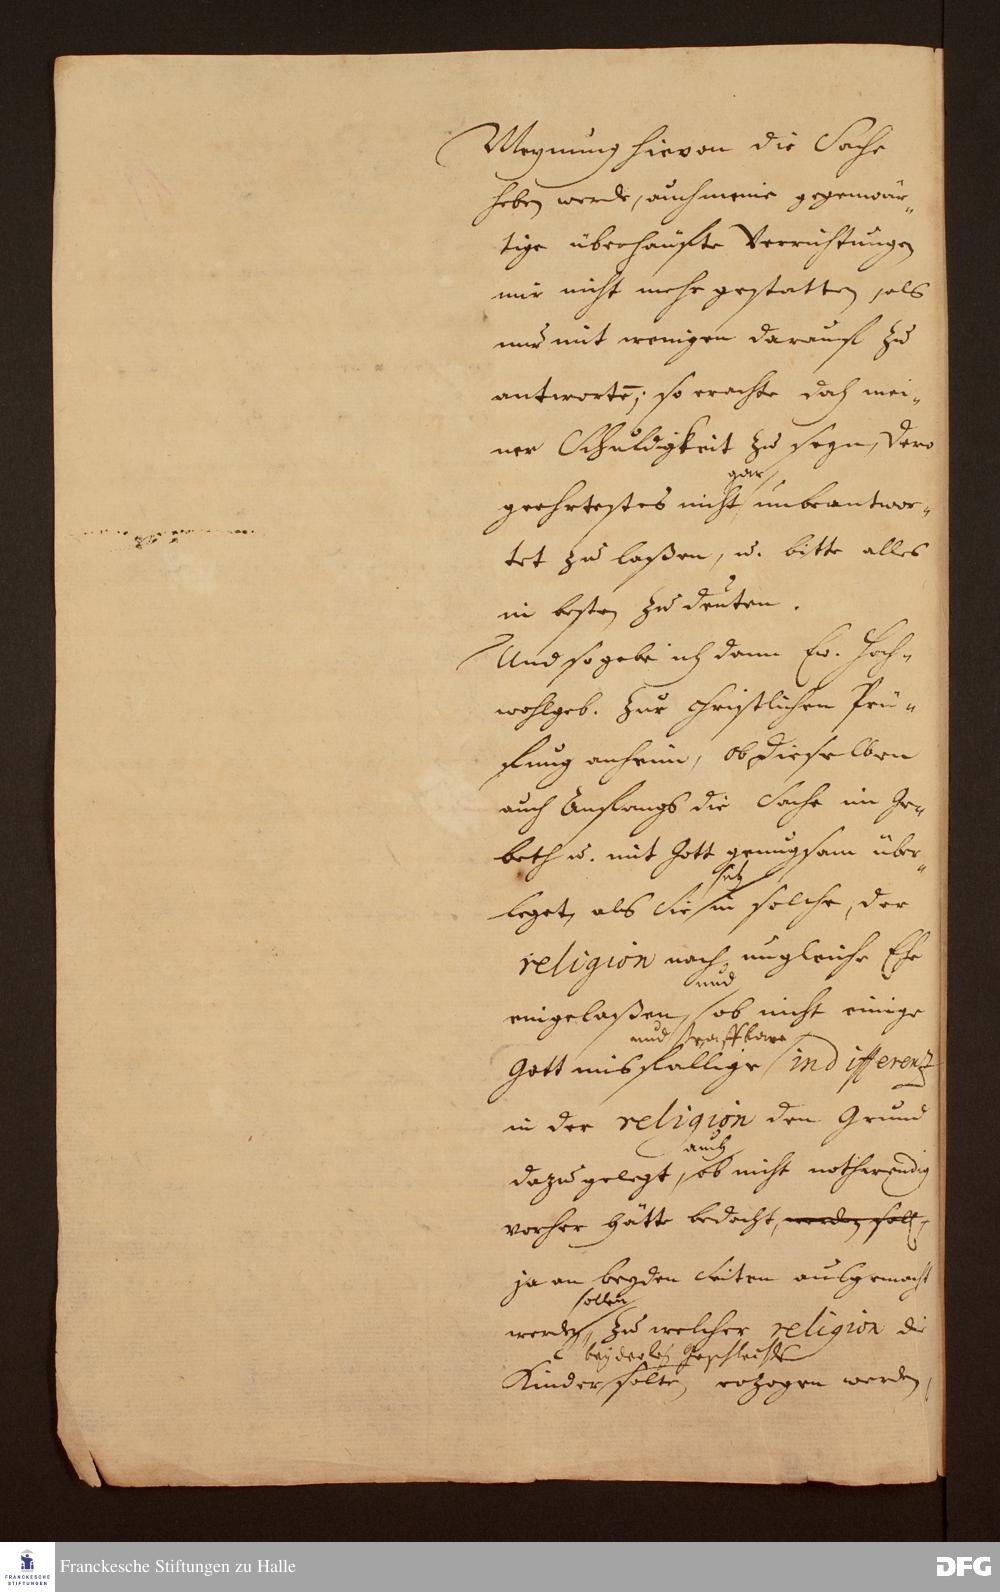 Meynung hievon die Sache
heben werde, auch meine gegenwär-
tige überhäufte Verrichtungen
mir nicht mehr gestatten, als
nur mit wenigen darauf zu
antworten; so erachte doch mei-
ner Schuldigkeit zu seyn, Dero
gar
geehrtestes nicht unbeantwor-
tet zu laßen, u. bitte alles
in besten zu deuten.
Und so gebe ich dann Ew. Hoch-
wohlgeb. zur Christlichen Prü-
fung anheim, ob dieselben
auch Anfangs die Sache im Ge-
beth u. mit Gott genugsam über-
sich
leget, als Sie in solche, der
religion nach, ungleiche Ehe
und
eingelaßen, ob nicht einige
und straffbare
Gott misfällige indifferentz
in der religion den Grund
auch
dazu gelegt, ob nicht nothwendig
vorher hätte bedacht, werden soll,
ja an beyden Seiten ausgemacht
sollen
werden, zu welcher religion die
beyderley Geschlechts
Kinder solten erzogen werden,
Franckesche Stiftungen zu Halle
FRANCKESCHE
STIFTUNGEN
DFG